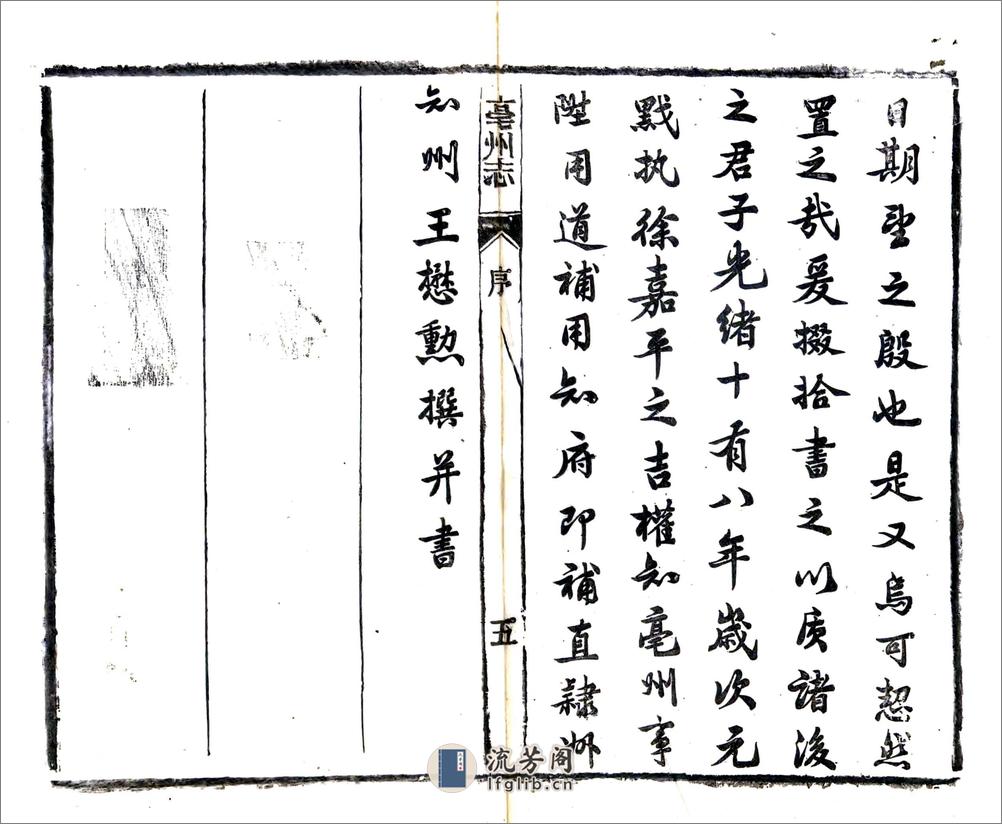 日期望之殷也是又烏可恝然
置之哉爰掇拾書之以質諸後
之君子光緒十有八年歲次元
黓执徐嘉平之吉權知亳州事
陞用道補用知府即補直隸州
亳州志
序
五
知州王懋勳撰并書
流芳阁
lfglib.cn